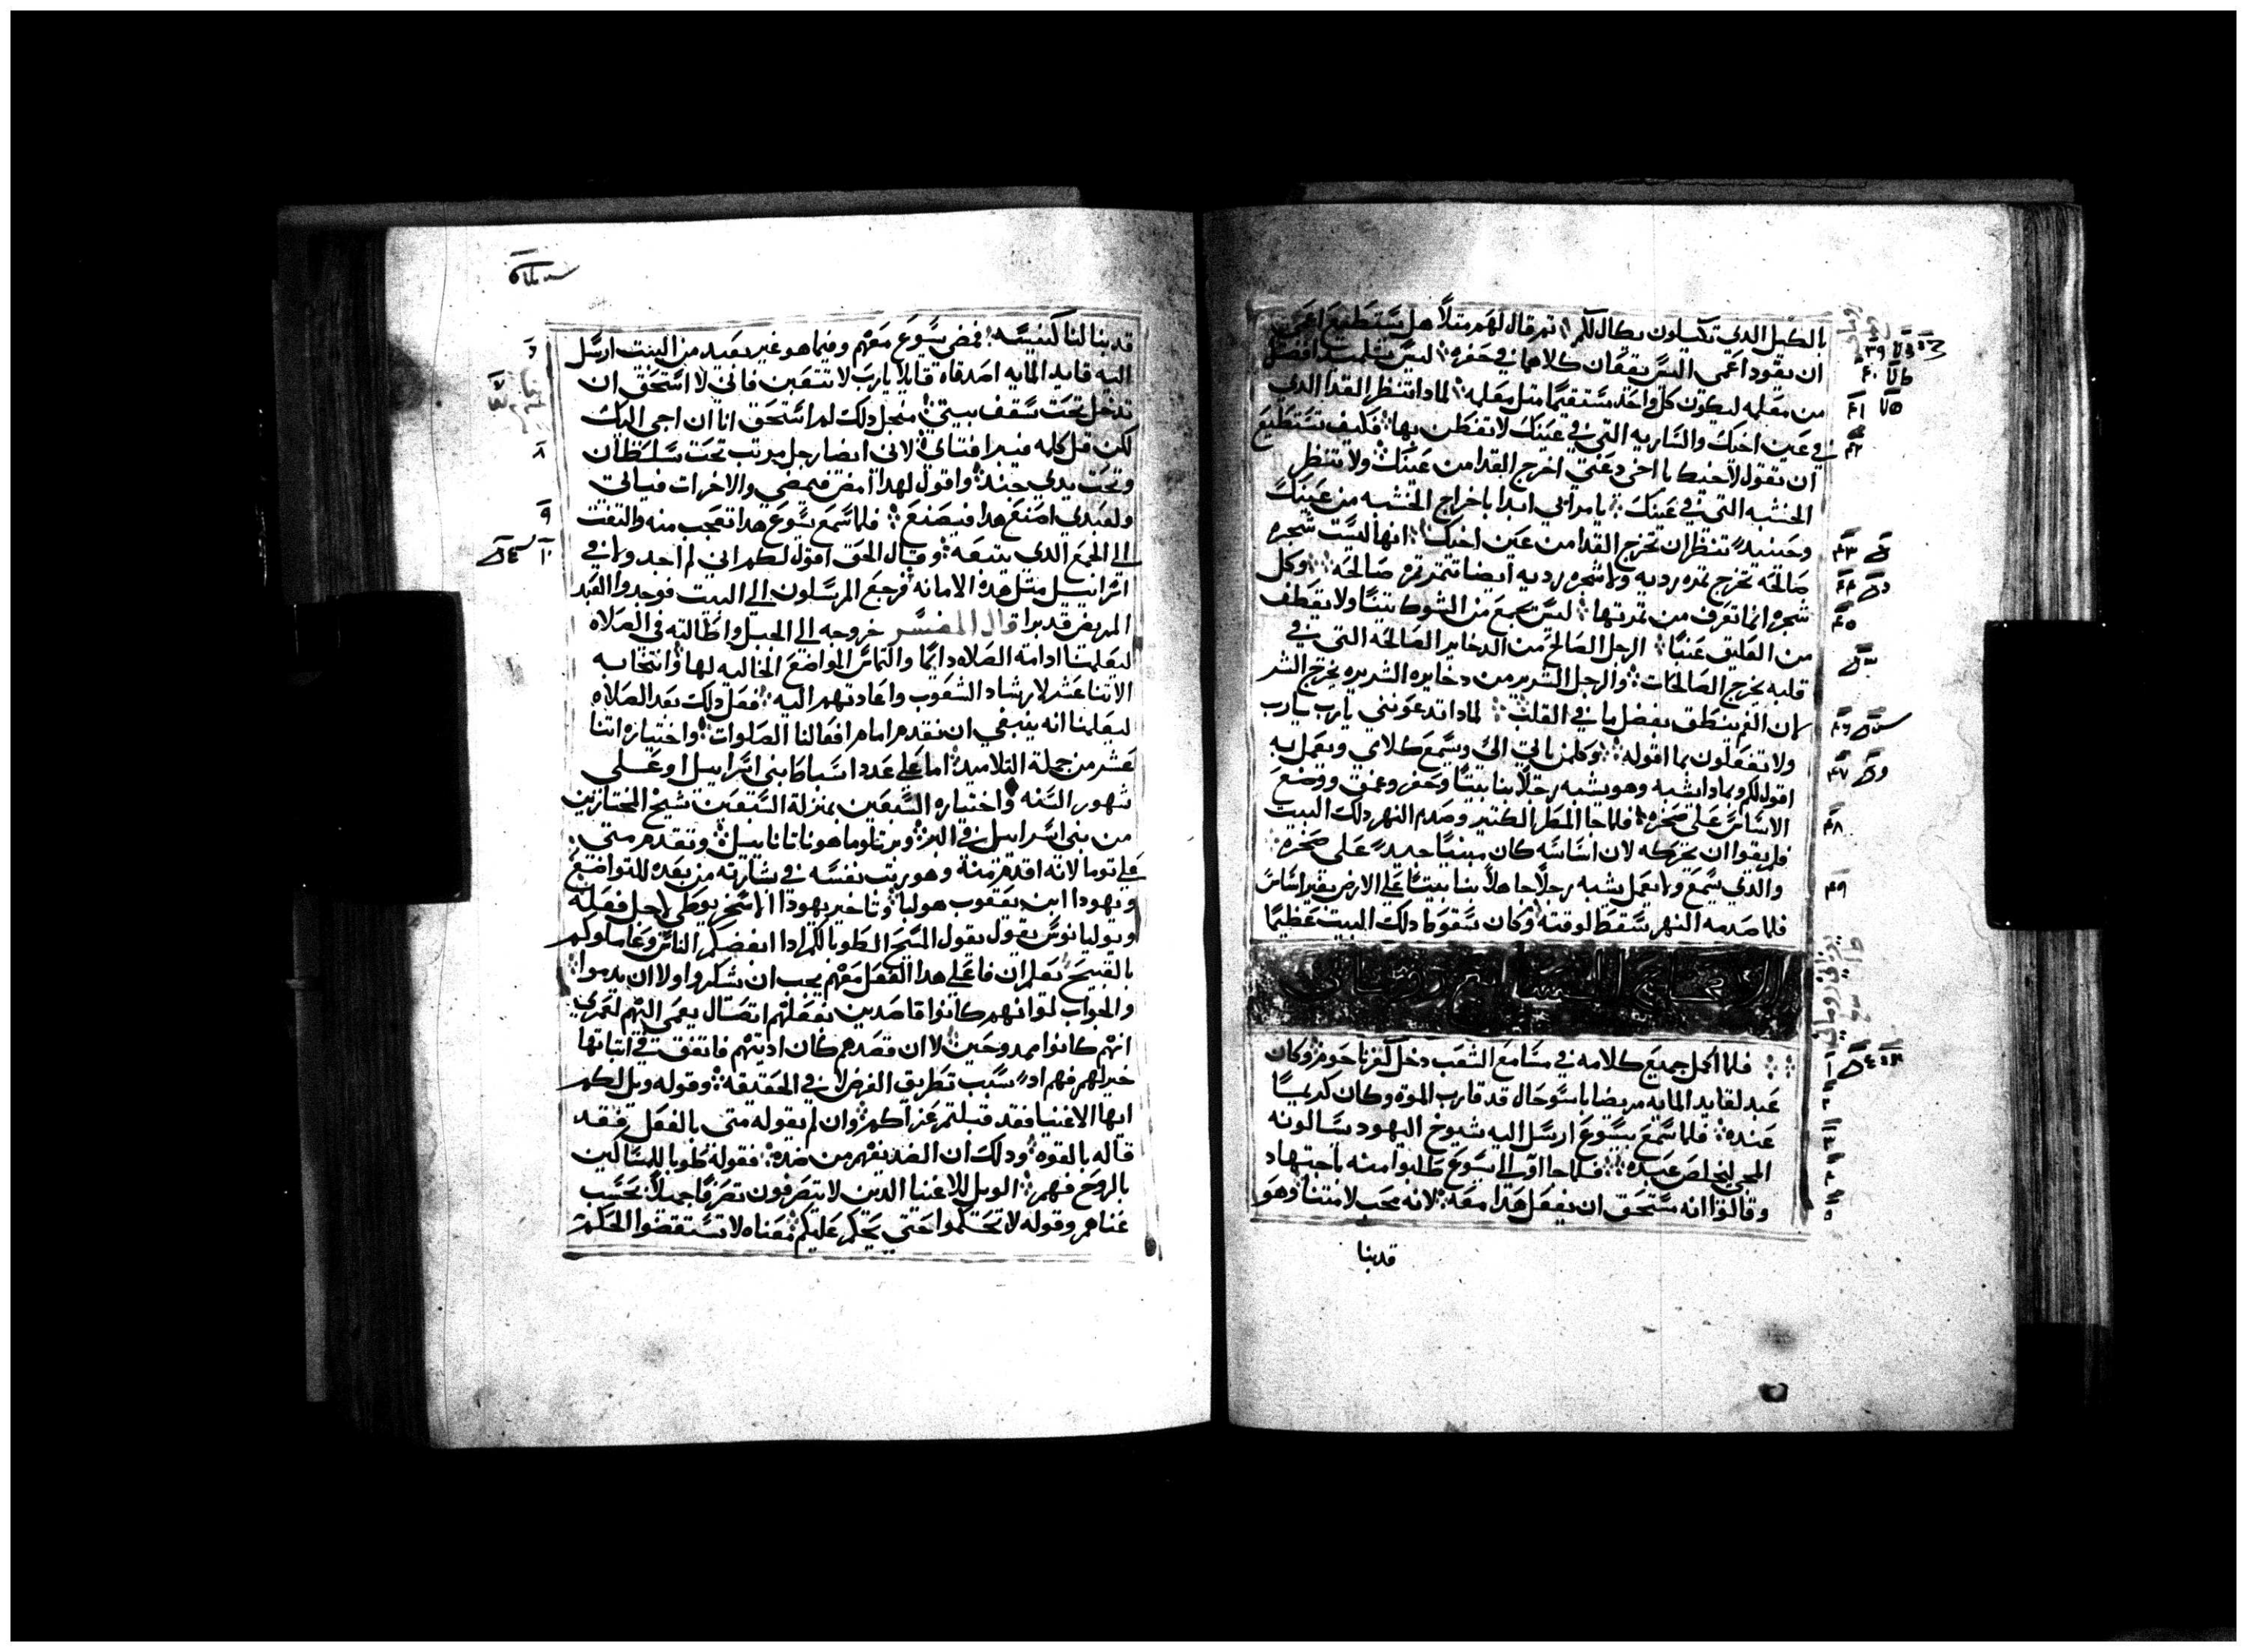 بالكيل الدي تكيلون يكال لكم ثم قال لهم مثلاً هل يستطيع اعمى
ان يقود اعمى اليس يقعان كلاهما في حفره ليس تلميد افضل
من معلمه ليكون كل واحد مستقيمًا مثل معلمه لمادا تنظر القدا الدي
في عين اخيك والساريه التي في عينك لا تفطن بها فكيف تستطيع
ان تقول لاخيك يا اخي دعني اخرج القدا من عينك ولا تنظر
الخشبه التي في عينك يا مرائي ابدا باخراج الخشبه من عينك
وحينيدٍ تنظر ان تخرج القدا من عين اخيك انها ليست شجره
صالحه تخرج ثمره رديه ولا شجره رديه ايضا تثمر ثمره صالحه وكل
شجره انما تعرف من ثمرتها ليس يجمع من الشوك تينًا ولا يقطف
من العليق عنبًا الرجل الصالح من الدخاير الصالحه التي في
قلبه يخرج الصالحات والرجل الشرير من دخايره الشريره يخرج الشر
لان الفم ينطق بفضل ما في القلب لمادا تدعونني يارب يارب
ولا تفعلون بما اقوله وكلمن ياتي الي ويسمع كلامي ويعمل به
اقول لكم بمادا اشبه وهو يشبه رجلاً بنا بيتًا وحفر وعمق ووضع
الاساس على صخره فلما جا المطر الكثير وصدم النهر دلك البيت
فلم يقوا ان يحركه لان اساسه كان مبنيًا جيدًا على صخره
والدي يسمع ولا يعمل يشبه رجلاً جاهلاً بنا بيتًا على الارض بغير اساس
فلما صدمه النهر سقط لوقته وكان سقوط دلك البيت عظيمًا
الاصحاح السابع
فلما اكمل جميع كلامه في مسامع الشعب دخل كفرناحوم وكان
عبد لقايد المايه مريضا باسو حال قد قارب الموة وكان كريمًا
عنده فلما سمع يسوع ارسل اليه شيوخ اليهود يسالونه
المجي ليخلص عبده فلما جاوا الى يسوع طلبوا منه باجتهاد
وقالوا انه مستحق ان يفعل هدا معه لانه محب لامتنا وهو
قد بنا
قد بنا لنا كنيسه فمضى يسوع معهم وفيما هو غير بعيد من البيت ارسل
اليه قايد المايه اصدقاه قايلاً يارب لا تتعبن فاني لا استحق ان
تدخل تحت سقف بيتي منجل دلك لم استحق انا ان اجي اليك
لكن قل كلمه فيبرا فتاي لاني ايضا رجل مرتب تحت سلطان
وتحت يدي جند واقول لهدا امض فيمضي والاخر ات فياتي
ولعبدي اصنع هدا فيصنع فلما سمع يسوع هدا تعجب منه والتفت
الى الجمع الدي يتبعه وقال الحق اقول لكم اني لم اجد ولا في
اسراييل مثل هده الامانه فرجع المرسلون الى البيت فوجدوا العبد
المريض قد برا قال المفسر خروجه الى الجبل واطالته في الصلاه
ليعلمنا ادامة الصلاه دايمًا والتماس المواضع الخاليه لها وانتخابه
الاثنا عشر لارشاد الشعوب واعادتهم اليه فعل دلك بعد الصلاه
ليعلمنا انه ينبغي ان نقدم امام افعالنا الصلوات واختياره اثنا
عشر من جملة التلاميد اما على عدد اسباط بني اسراييل او على
شهور السنه واختياره السبعين بمنزلة السبعين شيخ المختارين
من بني اسراييل في البر وبرتلوما هو ناتاناييل وتقدم متى
على توما لانه اقدم منه وهو رتب نفسه في بشارته من بعده للتواضع
ويهودا ابن يعقوب هو لبا وتاخير يهودا الاسخريوطي لاجل فعله
ويوليانوس يقول يقول المسيح الطوبا لكم ادا ابغضكم الناس وعاملوكم
بالقبيح يعلم ان فاعلي هدا الفعل معهم يجب ان يشكروا اولا ان يدموا
والجواب لو انهم كانوا قاصدين بفعلهم اتصال يعمى اليهم لعمري
انهم كانوا ممدوحين لا ان قصدهم كان اديتهم فاتفق في اتباتها
خيرا لهم فهم ادًا سبب بطريق العرض لا في الحقيقه وقوله ويل لكم
ايها الاغنيا فقد قبلتم عزاكم وان لم يقوله متى بالفعل فقد
قاله بالقوه ودلك ان الضد يفهم من ضده فقوله طوبا للمساكين
بالروح فهم الويل للاغنيا الدين لا يتصرفون تصرفًا جميلاً بحسب
غناهم وقوله لا تحكموا حتى يحكم عليكم معناه لا تستقصوا الحكم